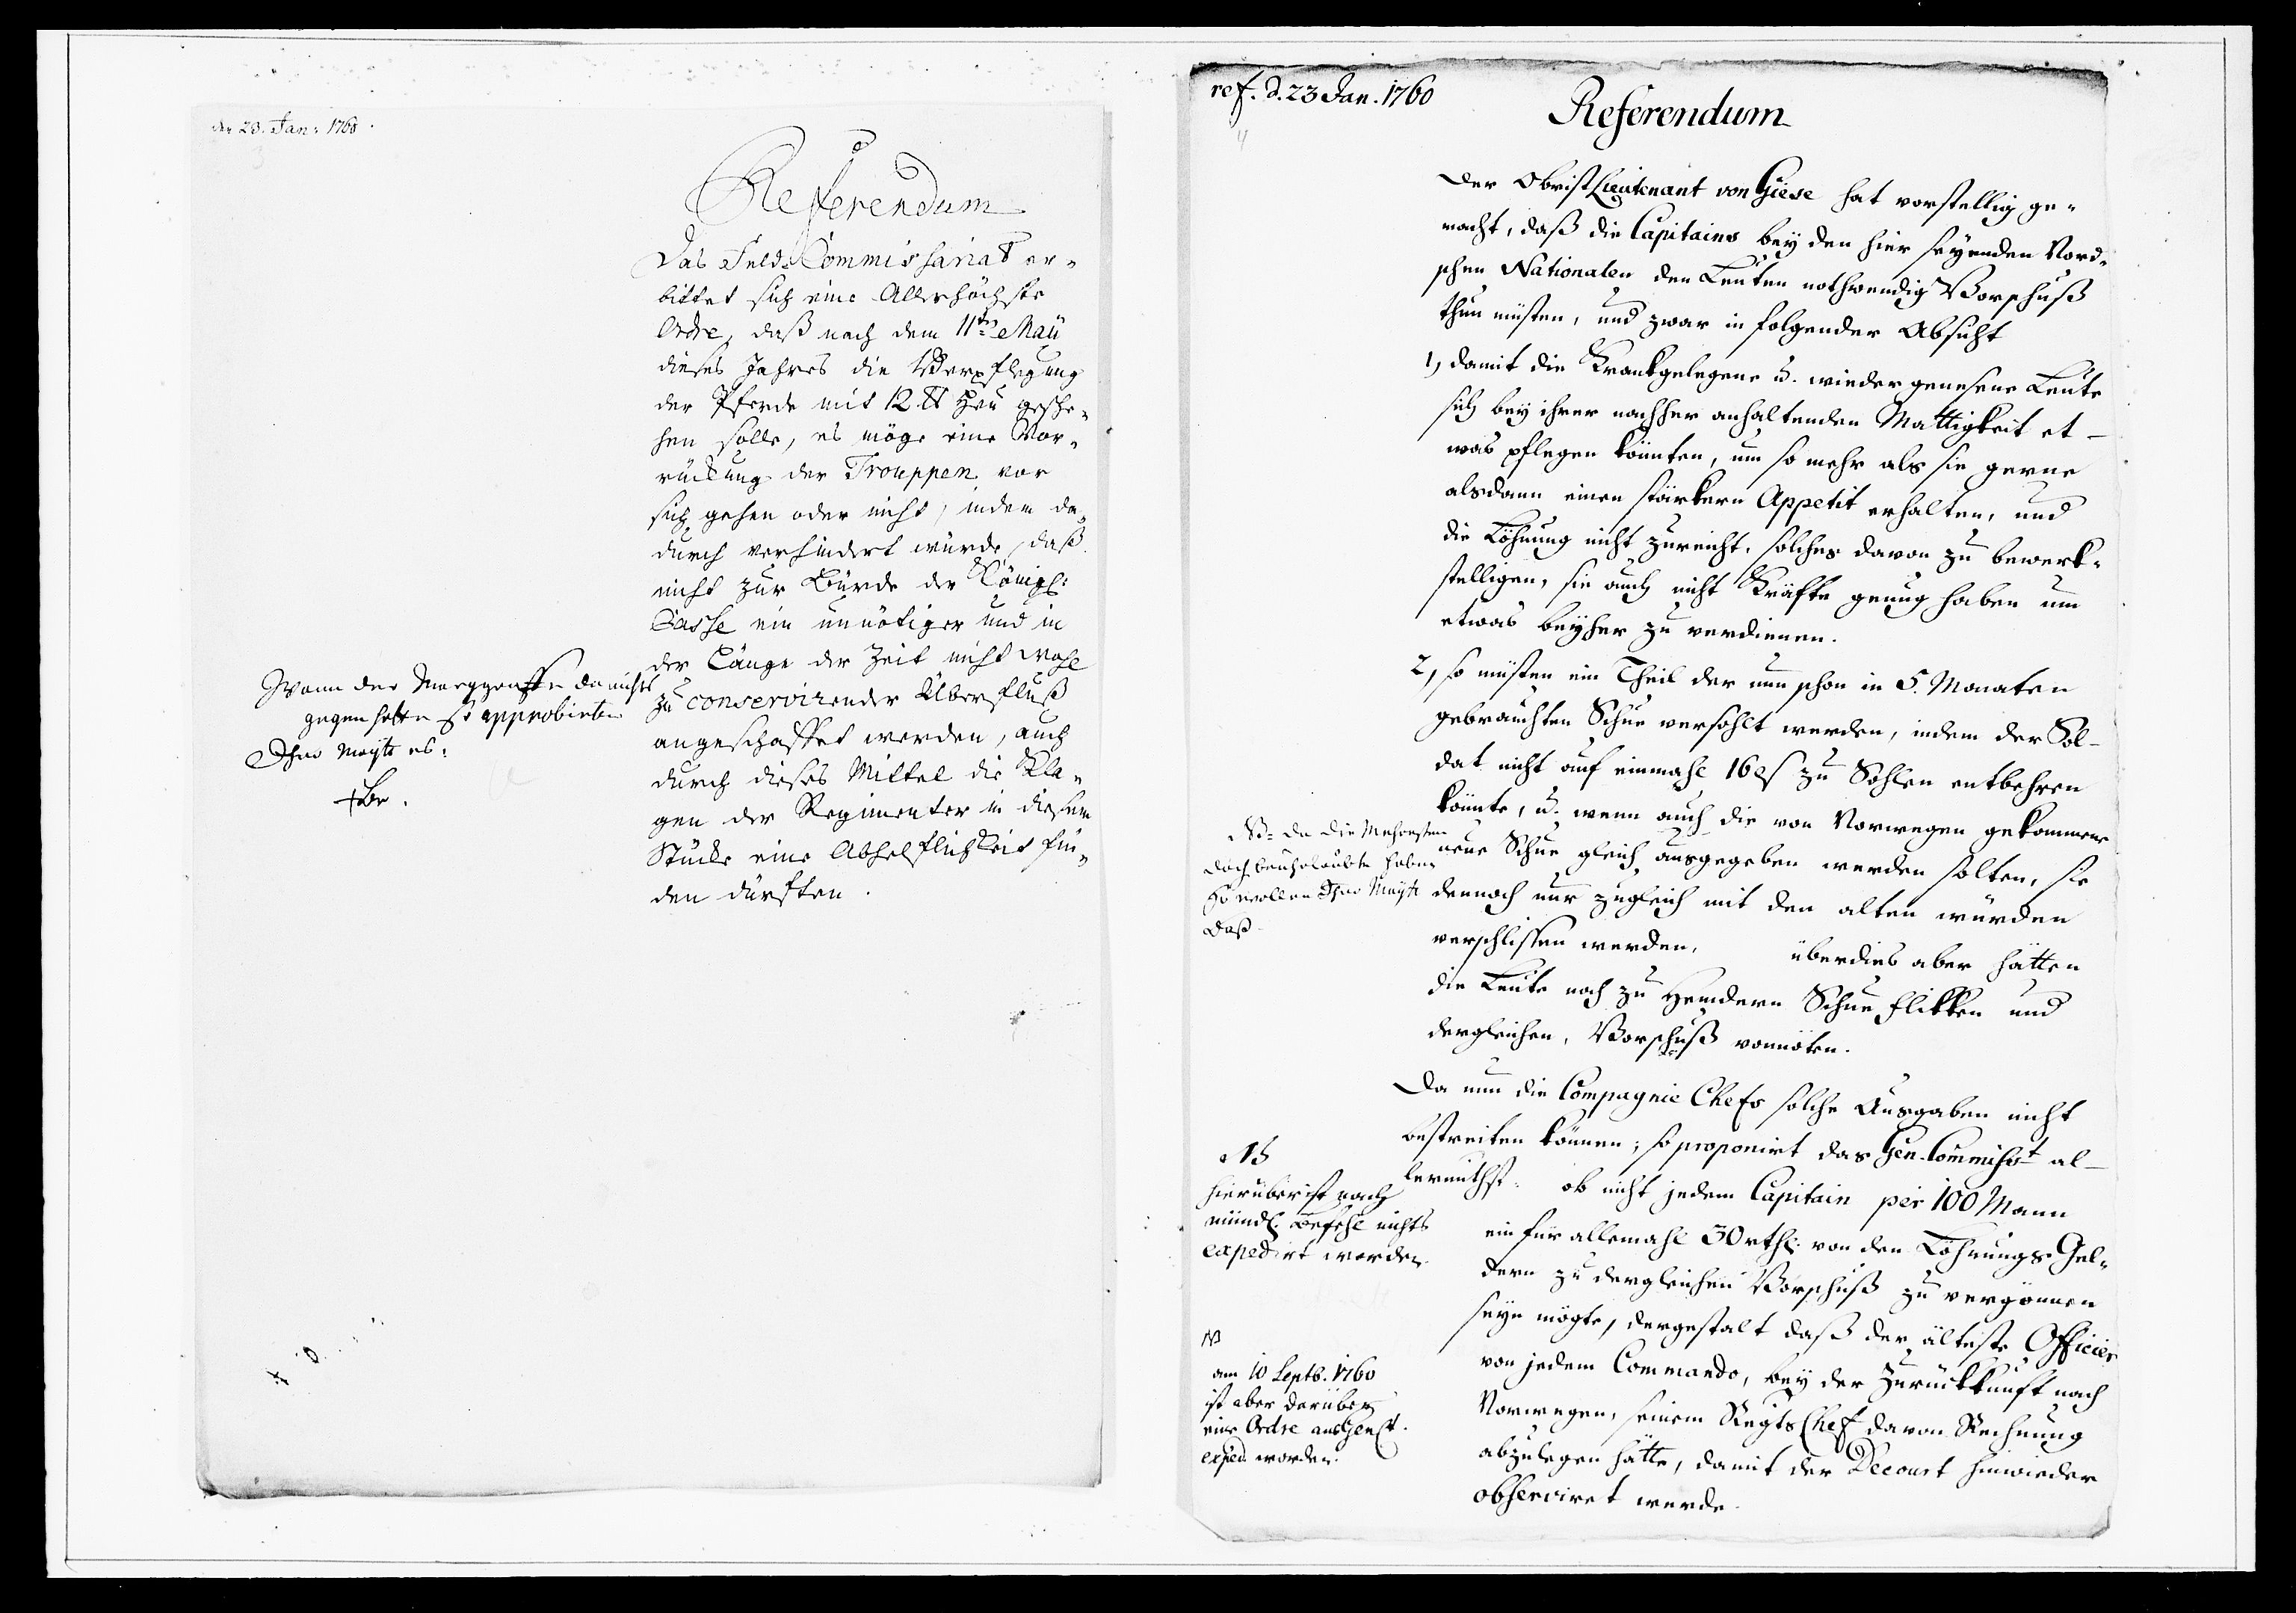 den 23. Jan: 1760.
3
Referendum
Das Feld-Commissariat er-
bittet sich eine Allerhöchste
Ordre, daß nach dem 11ten Maÿ
dieses Jahres die Verpflegung
der Pferde mit 12 ℔ Heu gesche-
hen solle, es möge eine Vor-
rückung der Trouppen vor
sich gehen oder nicht, indem da-
durch verhindert würde, daß
nicht zur Bürde der Königl:
Casse ein unnötiger und in
der Länge der Zeit nicht wohl
zu conservirender Überfluß
angeschaffet werden, auch
durch dieses Mittel die Kla-
gen der Regimenter in diesem
Stücke eine Abhelflichkeit fin-
den dürften.
Wann der Marggraff da nichts
gegen hette so approbirten
Ihro Maytt es:
ref. d. 23 Jan. 1760
4
Referendum
Der ObristLieutenant von Giese hat vorstellig ge-
macht, daß die Capitains beÿ den hier seÿenden Nord-
schen Nationalen den Leuten nothwendig Vorschuß
thun müsten, und zwar in folgender Absicht
1, damit die Krankgelegene u. wieder genesene Leute
sich beÿ ihrer nachher anhaltenden Mattigkeit et-
was pflegen könnten, um so mehr als sie gerne
alsdann einen stärkern Appetit erhalten, und
die Löhnung nicht zureicht, solches davon zu bewerk-
stelligen, sie auch nicht Kräfte genug haben um
etwas beÿher zu verdienen.
2, so müsten ein Theil der nun schon in 5. Monaten
gebrauchten Schue versohlt werden, indem der Sol-
dat nicht auf einmahl 16 ßl zu Sohlen entbehren
könnte, u. wenn auch die von Norwegen gekommene
neue Schue gleich ausgegeben werden solten, sie
dennoch nur zugleich mit den alten würden
verschlissen werden, überdies aber hätten
die Leute noch zu Hemdern Schue flikken und
dergleichen, Vorschuß vonnöten.
NB: da die Mehresten
doch beuhrlaubte haben
So wollen Ihro Maytt
daß
Da nun die Compagnie Chefs solche Ausgaben nicht
bestreiten können; so proponirt das Gen. Commisst al-
lerunthst: ob nicht jedem Capitain per 100 Mann
ein für allemahl 50 rthl: von den Löhnungs-Gel-
dern zu dergleichen Vorschuß zu vergönnen
seÿn mögte, dergestalt daß der älteste Officier
von jedem Commando, beÿ der Zurückkunft nach
Norwegen, seinem RegtsChef davon Rechnung
abzulegen hätte, damit der Decourt hinwieder
observiret werde.
NB
hierüber ist nach
mündl. Befehl nichts
expedirt worden
NB
am 10 Septb. 1760
ist aber darüber
eine Ordre
exped. worden.